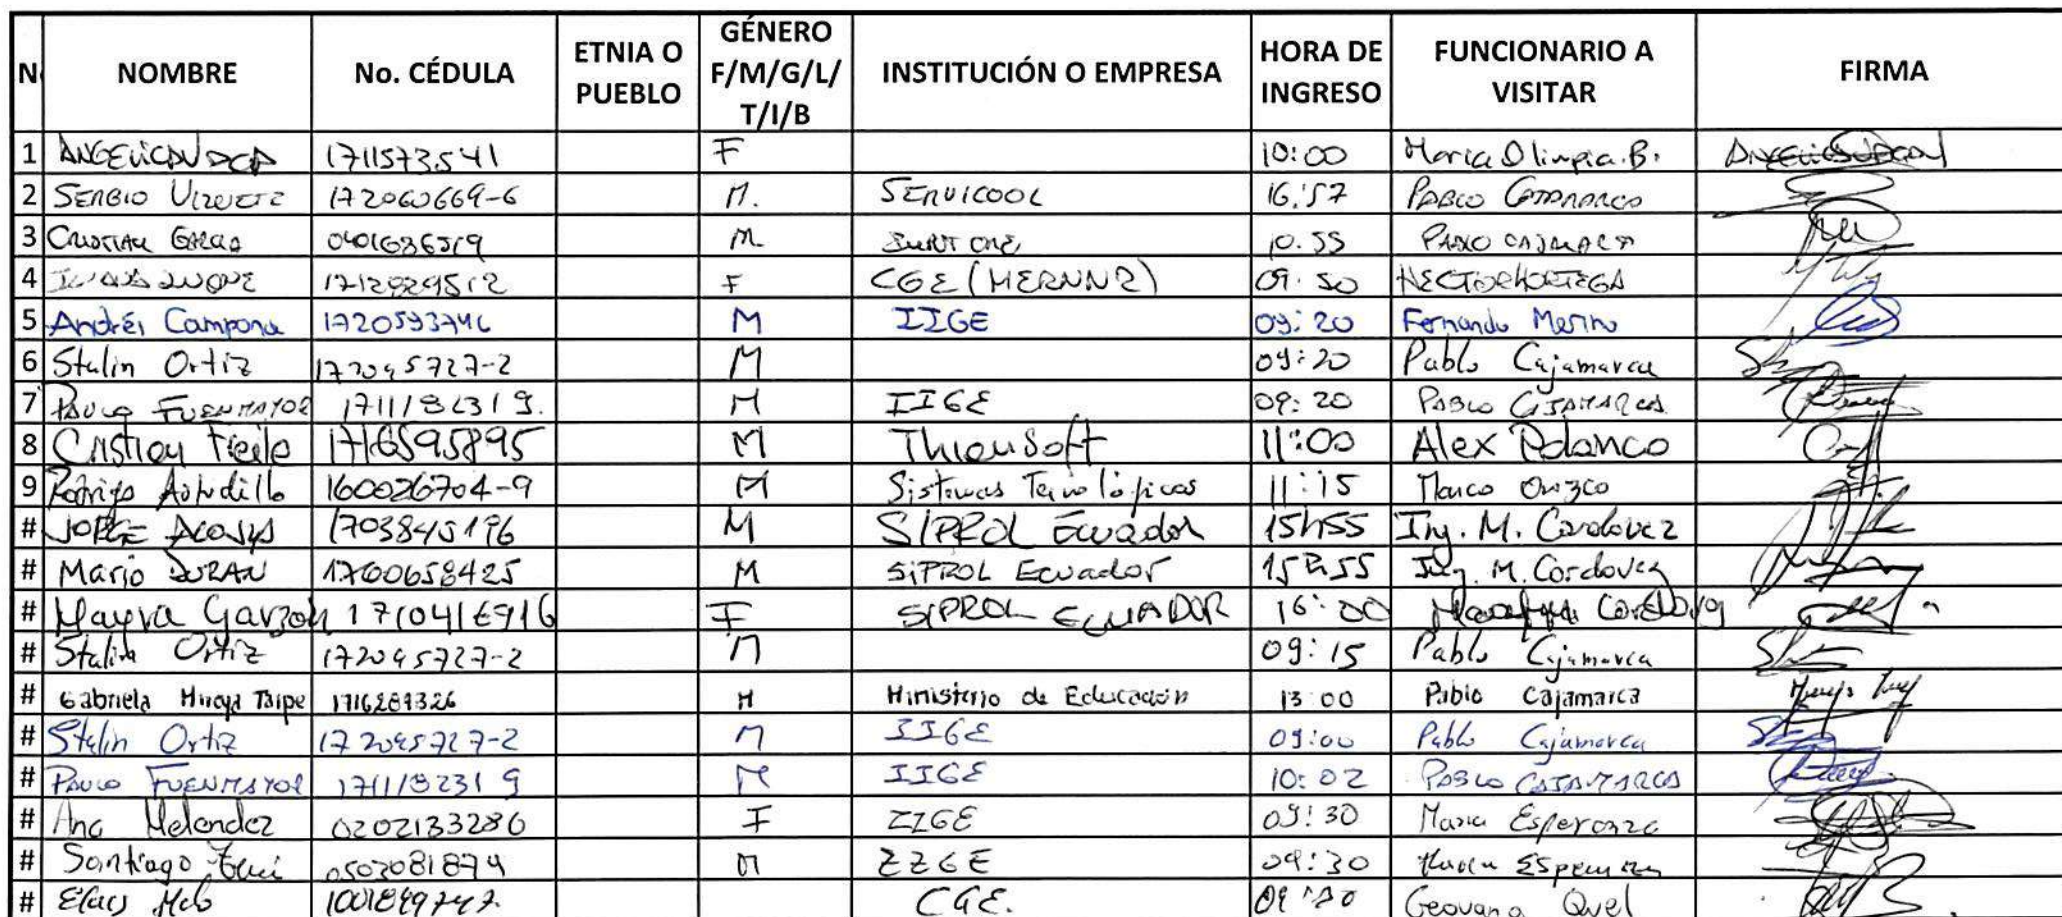 N NOMBRE No. CÉDULA ETNIA O PUEBLO GÉNERO F/M/G/L/T/I/B INSTITUCIÓN O EMPRESA HORA DE INGRESO FUNCIONARIO A VISITAR FIRMA
1 1711573541 F 10:00 Maria Olimpia.B.
2 SERGIO 172060669-6 M. SERVICOOL 16:57 PABLO
3 CRISTIAN GARCIA M 10.55 CAJAMARCA
4 DUQUE F CGE (MERNNR) 09:50 HECTOR ORTEGA
5 Andrés Campona M IIGE 09:20 Fernando Merino
6 Stalin Ortiz 172045727-2 M 09:20 Pablo Cajamarca
7 PAULO FUENMAYOR 1711182319. M IIGE 09:20 PABLO CAJAMARCA
8 Cristian Freile 1716595895 M ThienSoft 11:00 Alex Polanco
9 Rodrigo Astudillo 160026704-9 M Sistemas Tecnológicos 11:15 Marco Orozco
# JORGE ACOSTA M SIPROL Ecuador 15h55 Ing. M. Cordovez
# Mario DURAN 1700658425 M SIPROL Ecuador 15h55 Ing. M. Cordovez
# Mayra Garzon 1710416916 F SIPROL ECUADOR 16:00
# Stalin Ortiz 172045727-2 M 09:15 Pablo Cajamarca
# Gabriela Taipe M Ministerio de Educación 13:00 Pablo Cajamarca
# Stalin Ortiz 172045727-2 M IIGE 09:00 Pablo Cajamarca
# PAULO FUENMAYOR 1711182319 M IIGE 10:02 PABLO CAJAMARCA
# Ana Melendez 0202133286 F IIGE 09:30 Maria Esperanza
# Santiago 0503081874 M IIGE 09:30 Maria Esperanza
# CGE. Geovana Quel